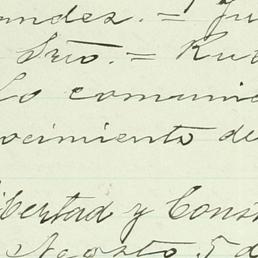 andez. = Ju
Srio. = Rub
Lo comunic
ocimiento de
ibertad y Const
Agosto 5 d